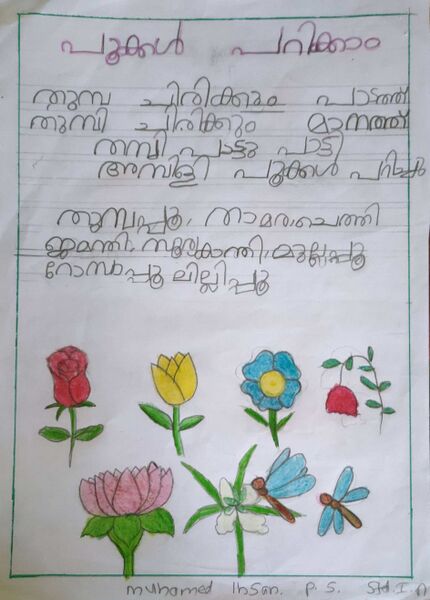 പൂക്കൾ പറിക്കാം
തുമ്പ ചിരിക്കും പാടത്ത്
തുമ്പി ചിരിക്കും മാനത്ത്
തമ്പി പാട്ടു പാട്ടി
അമ്പിളി പൂക്കൾ പറിച്ചു
തുമ്പപ്പൂ, താമര, ചെത്തി
ജമന്തി, സൂര്യകാന്തി, മുല്ലപ്പൂ
റോസാപ്പൂ ലില്ലിപ്പൂ
muhamed Ihsan. P. S. Std. I. A